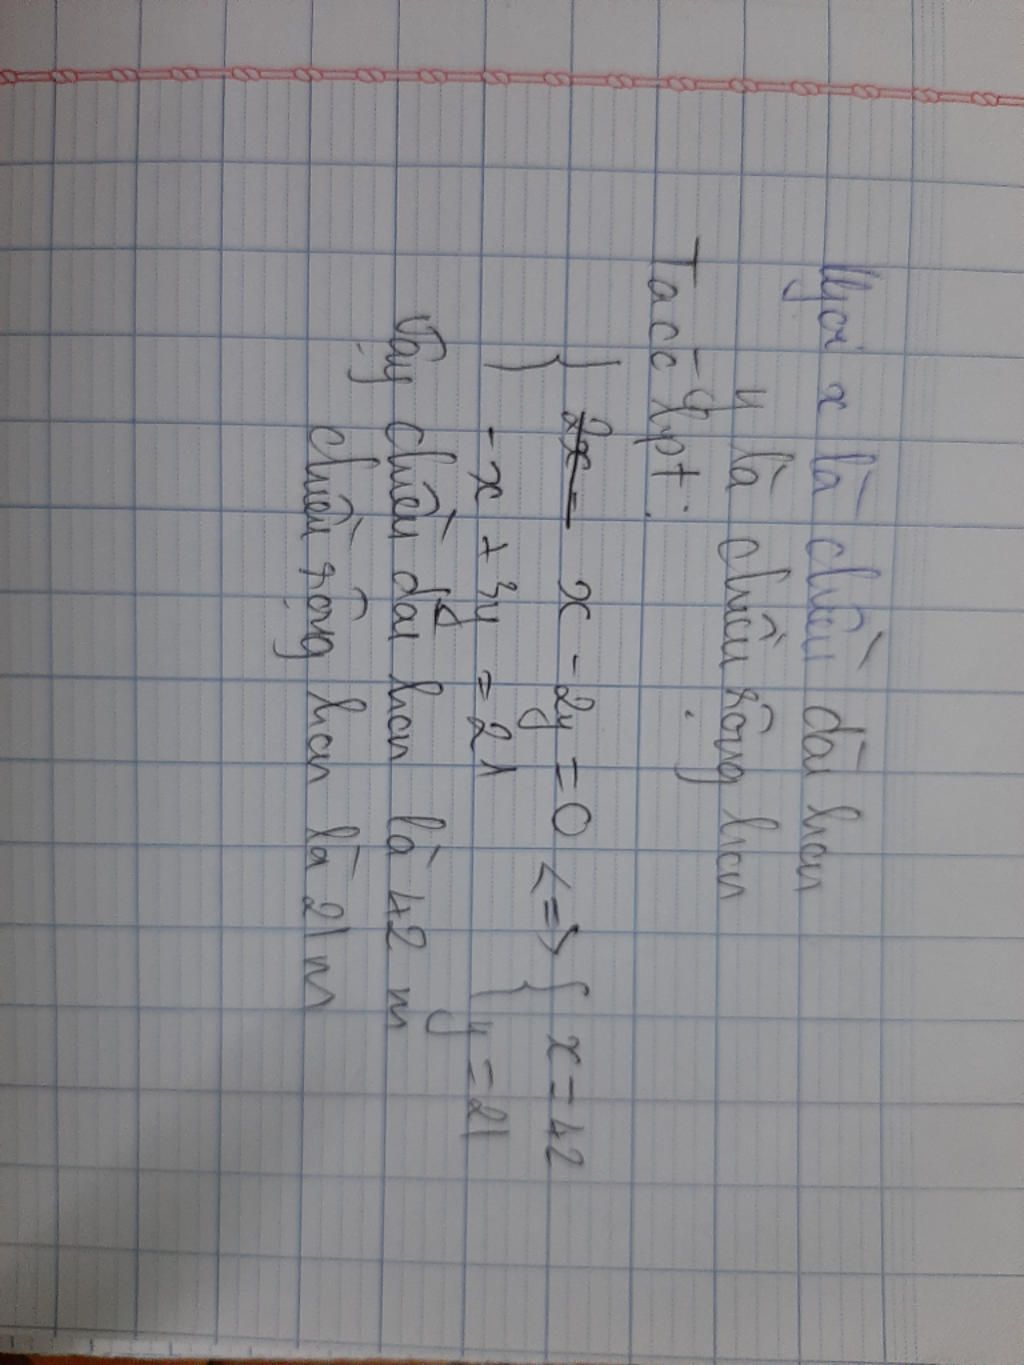 Gọi x là chiều dài hcn
y là chiều rộng hcn
Ta có hpt:
{ x - 2y = 0 <=> { x = 42
-x + 3y = 21 y = 21
Vậy chiều dài hcn là 42 m
chiều rộng hcn là 21 m